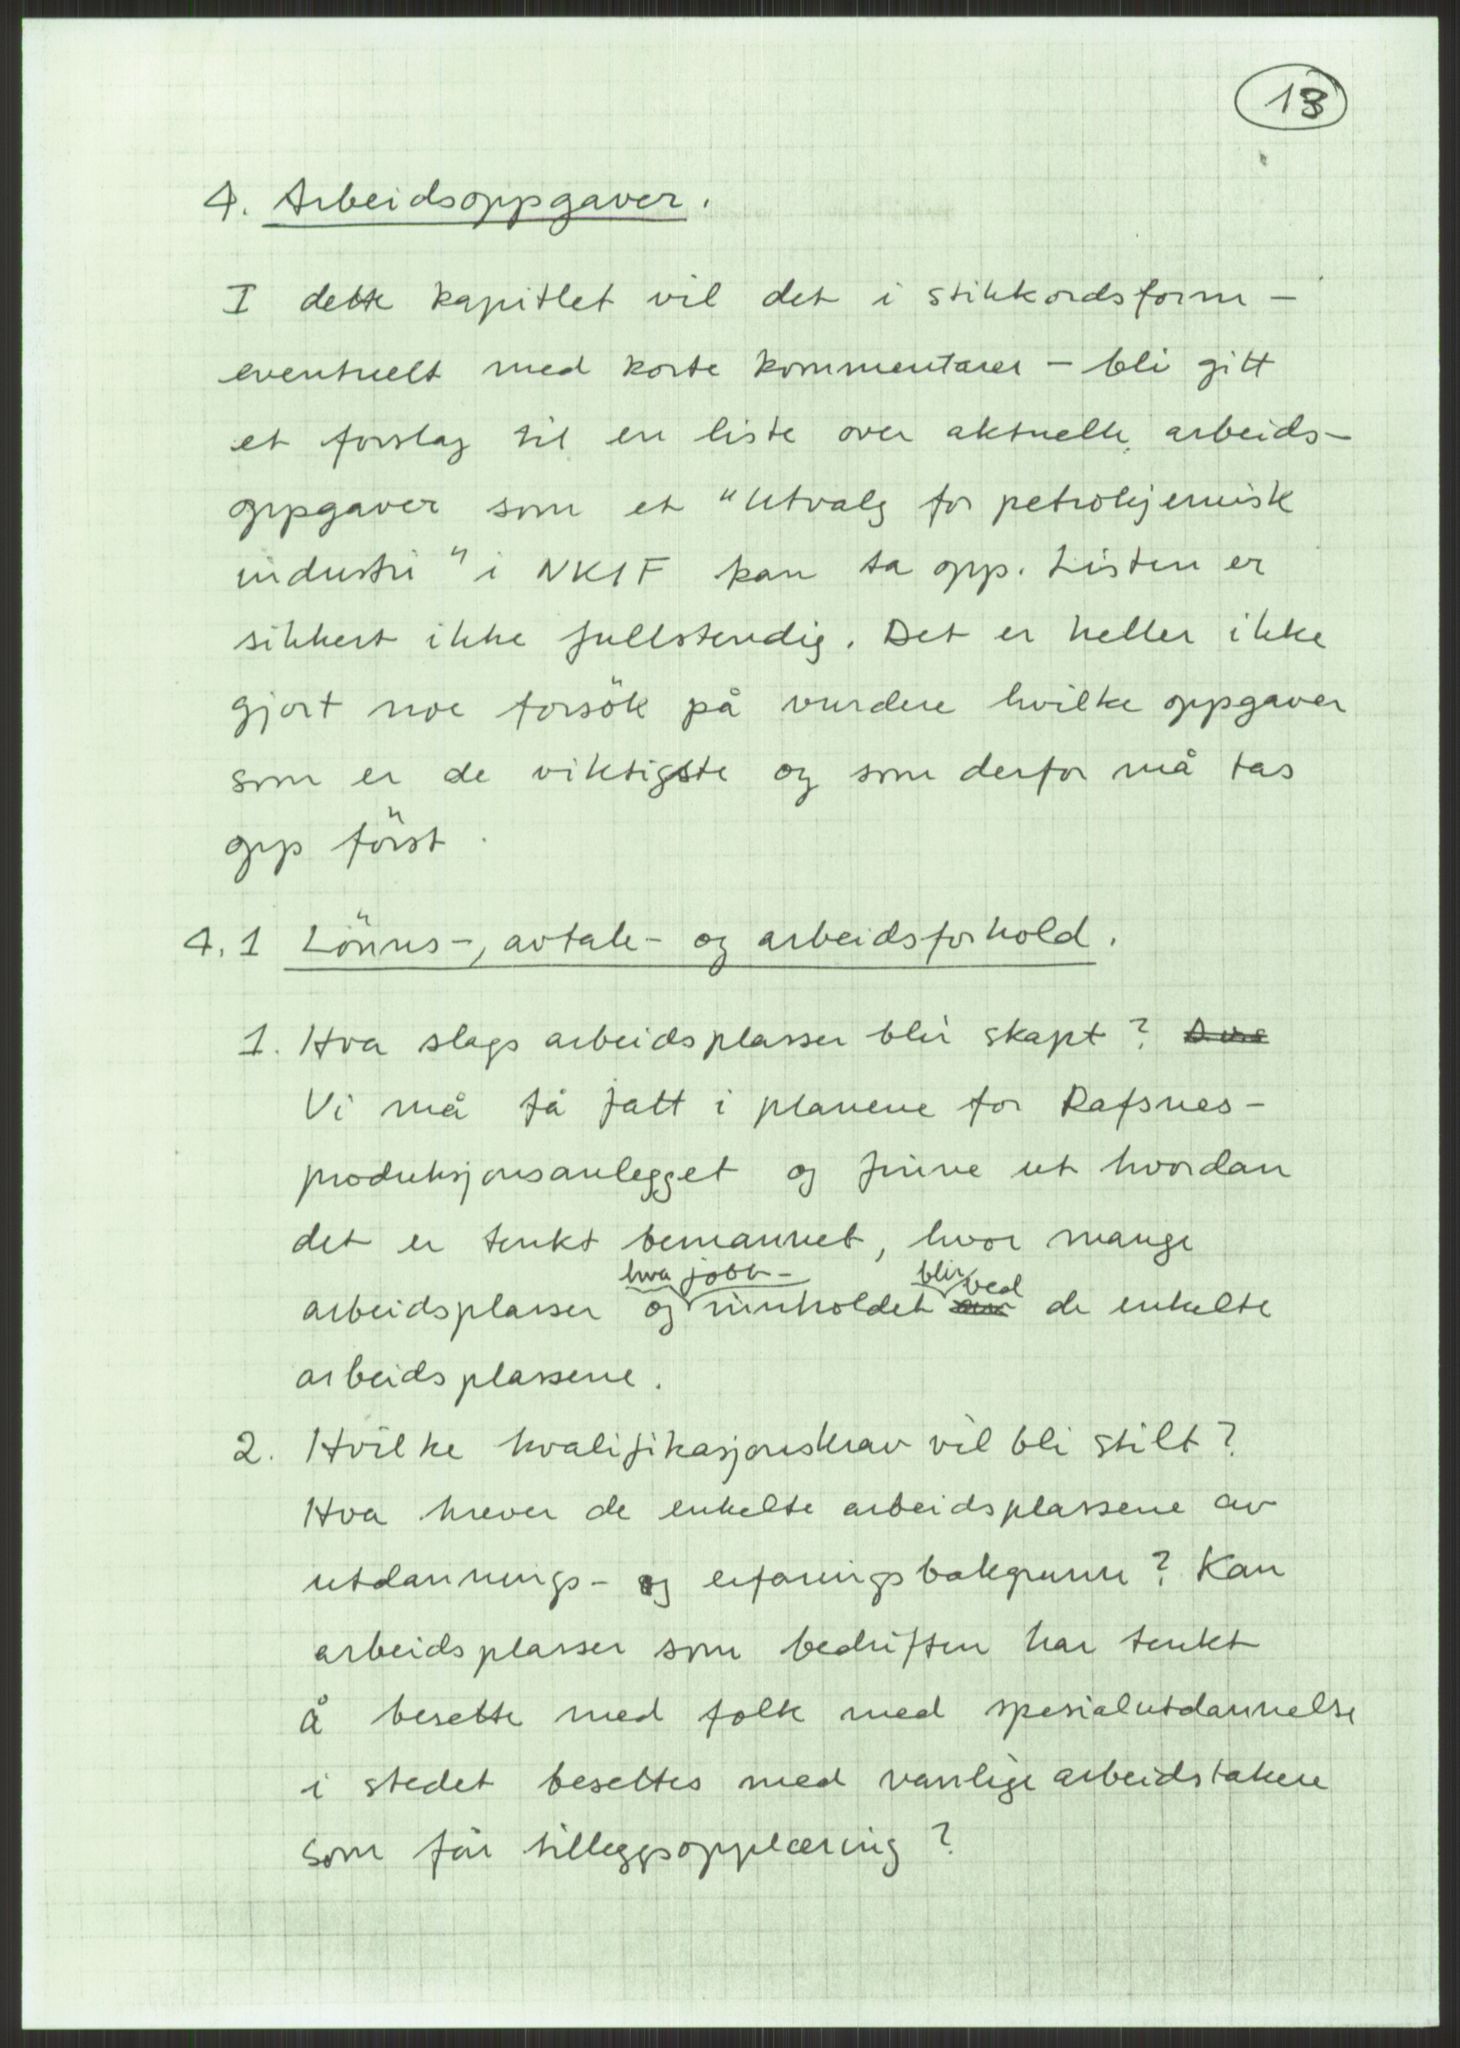 13
4. Arbeidsoppgaver.
I dette kapitlet vil det i stikkordsform –
eventuelt med korte kommentarer – bli gitt
et forslag til en liste over aktuelle arbeids-
oppgaver som et "Utvalg for petrokjemisk
industri" i NKIF kan ta opp. Listen er
sikkert ikke fullstendig. Det er heller ikke
gjort noe forsök på vurdere hvilke oppgaver
som er de viktigste og som derfor må tas
opp först.
4.1 Lönns-, avtale- og arbeidsforhold.
1. Hva slags arbeidsplasser blir skapt?
Vi må få fatt i planene for Rafsnes-
produksjonsanlegget og finne ut hvordan
det er tenkt bemannet, hvor mange
hva jobb- blir ved
arbeidsplasser og innholdet de enkelte
arbeidsplassene.
2. Hvilke kvalifikasjonskrav vil bli stilt?
Hva krever de enkelte arbeidsplassene av
utdannings- og erfaringsbakgrunn? Kan
arbeidsplasser som bedriften har tenkt
å besette med folk med spesialutdannelse
i stedet besettes med vanlige arbeidstakere
som får tilleggsopplæring?